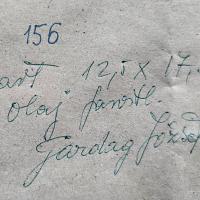 156
12,5 x 17,
olaj farostl.
Járdag József